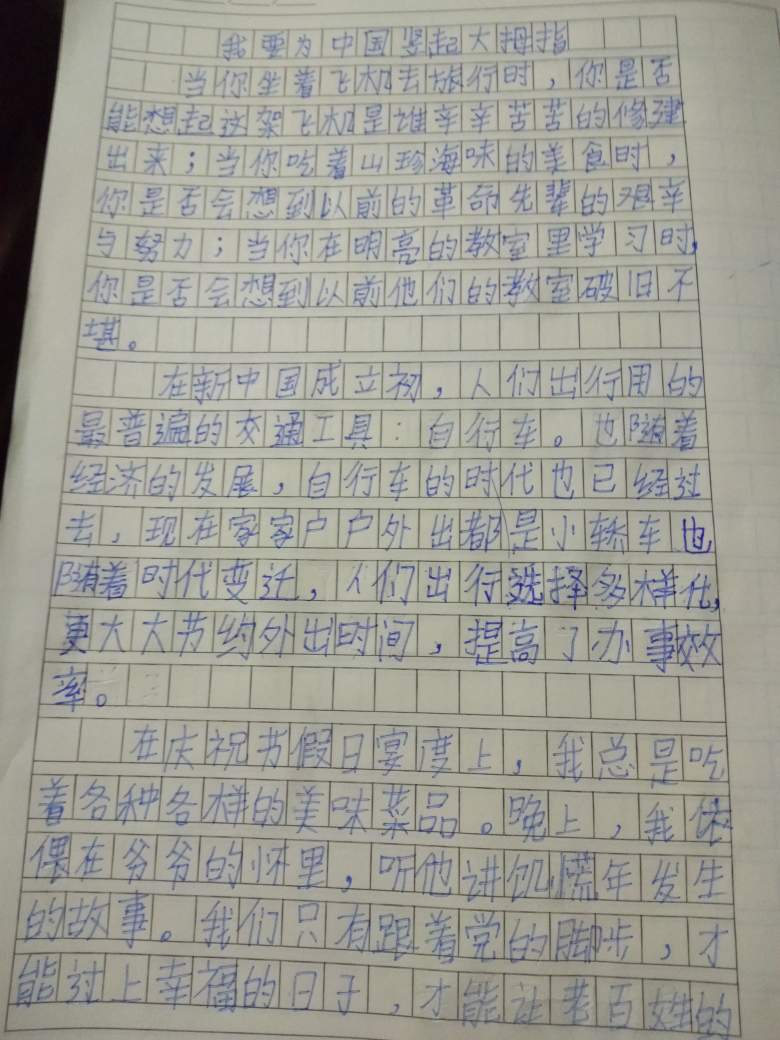 我要为中国竖起大拇指
当你坐着飞机去旅行时，你是否
能想起这架飞机是谁辛辛苦苦的修建
出来；当你吃着山珍海味的美食时，
你是否会想到以前的革命先辈的艰辛
与努力；当你在明亮的教室里学习时，
你是否会想到以前他们的教室破旧不
堪。
在新中国成立初，人们出行用的
最普遍的交通工具：自行车。也随着
经济的发展，自行车的时代也已经过
去，现在家家户户外出都是小轿车也，
随着时代变迁，人们出行选择多样化，
更大大节约外出时间，提高了办事效
率。
在庆祝节假日宴席上，我总是吃
着各种各样的美味菜品。晚上，我依
偎在爷爷的怀里，听他讲饥慌年发生
的故事。我们只有跟着党的脚步，才
能过上幸福的日子，才能让老百姓的